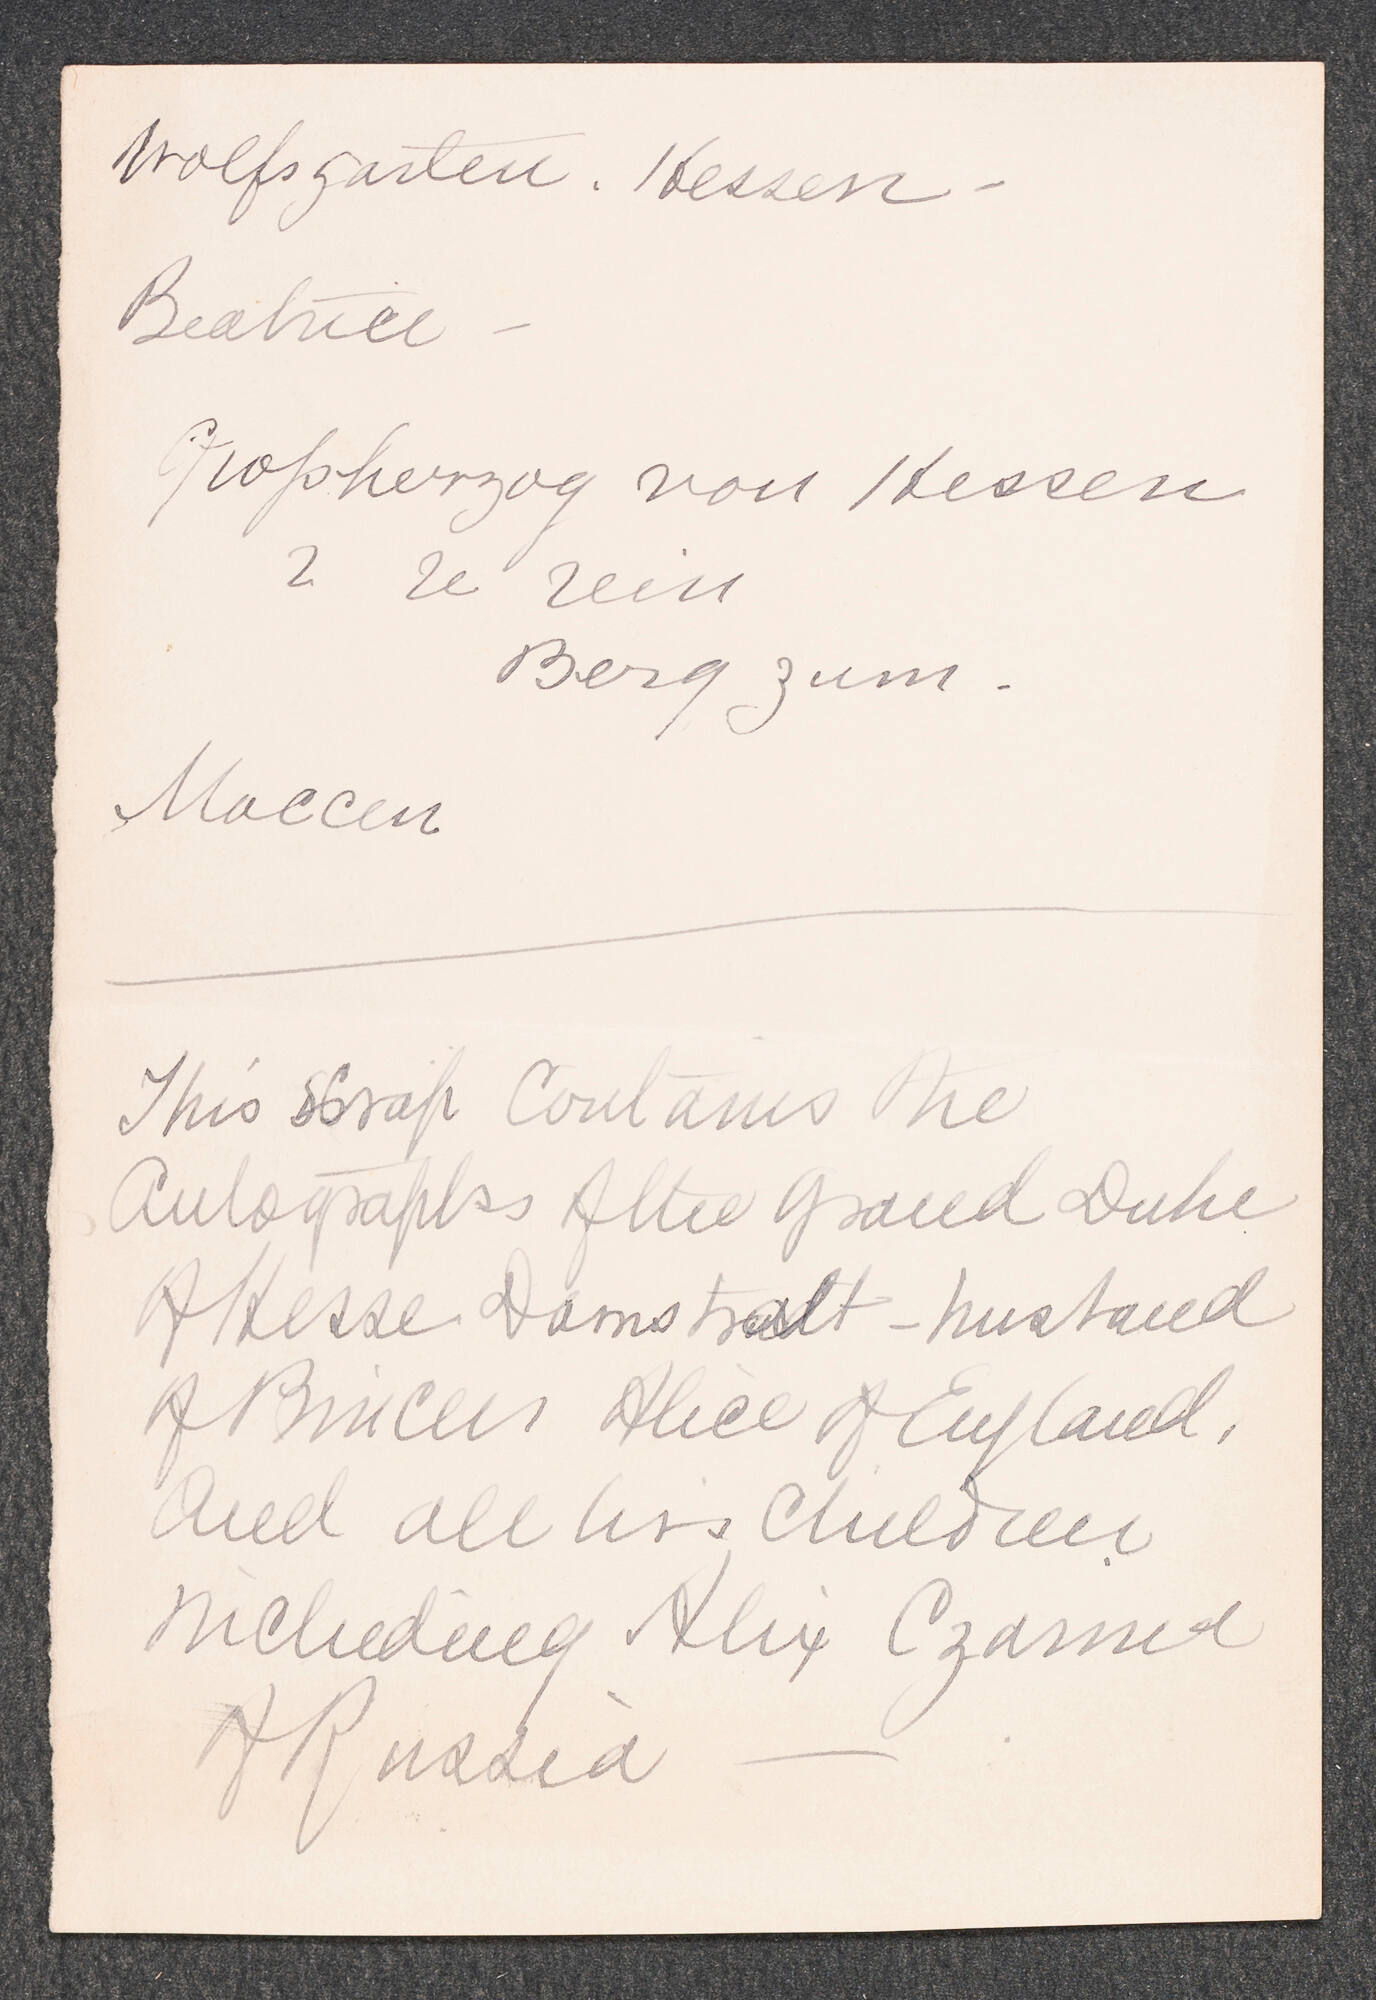 Wolfsgarten. Hessen -
Beatrice -
Großherzog von Hessen
2 2e rein
Berg zum -
Maccen
This scrap Contains the
Autographs of the Grand Duke
of Hesse Darmstradt - husband
of Princess Alice of England,
And all his Children
including Alix Czarina
of Russia —